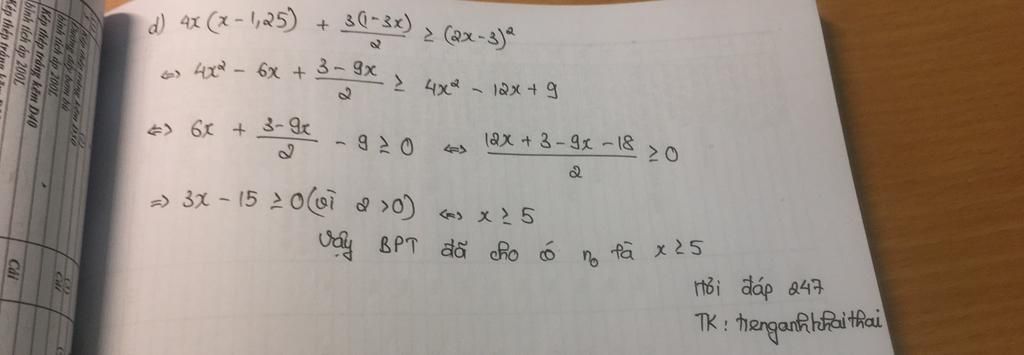 d) 4x(x-1,25) + 3(1-3x)/2 ≥ (2x-3)²
⇔ 4x² - 6x + 3-9x/2 ≥ 4x² - 12x + 9
⇔ 6x + 3-9x/2 - 9 ≥ 0 ⇔ 12x + 3 - 9x - 18/2 ≥ 0
⇒ 3x - 15 ≥ 0 (vì 2 > 0) ⇔ x ≥ 5
Vậy BPT đã cho có n₀ là x ≥ 5
Hỏi đáp 247
TK: